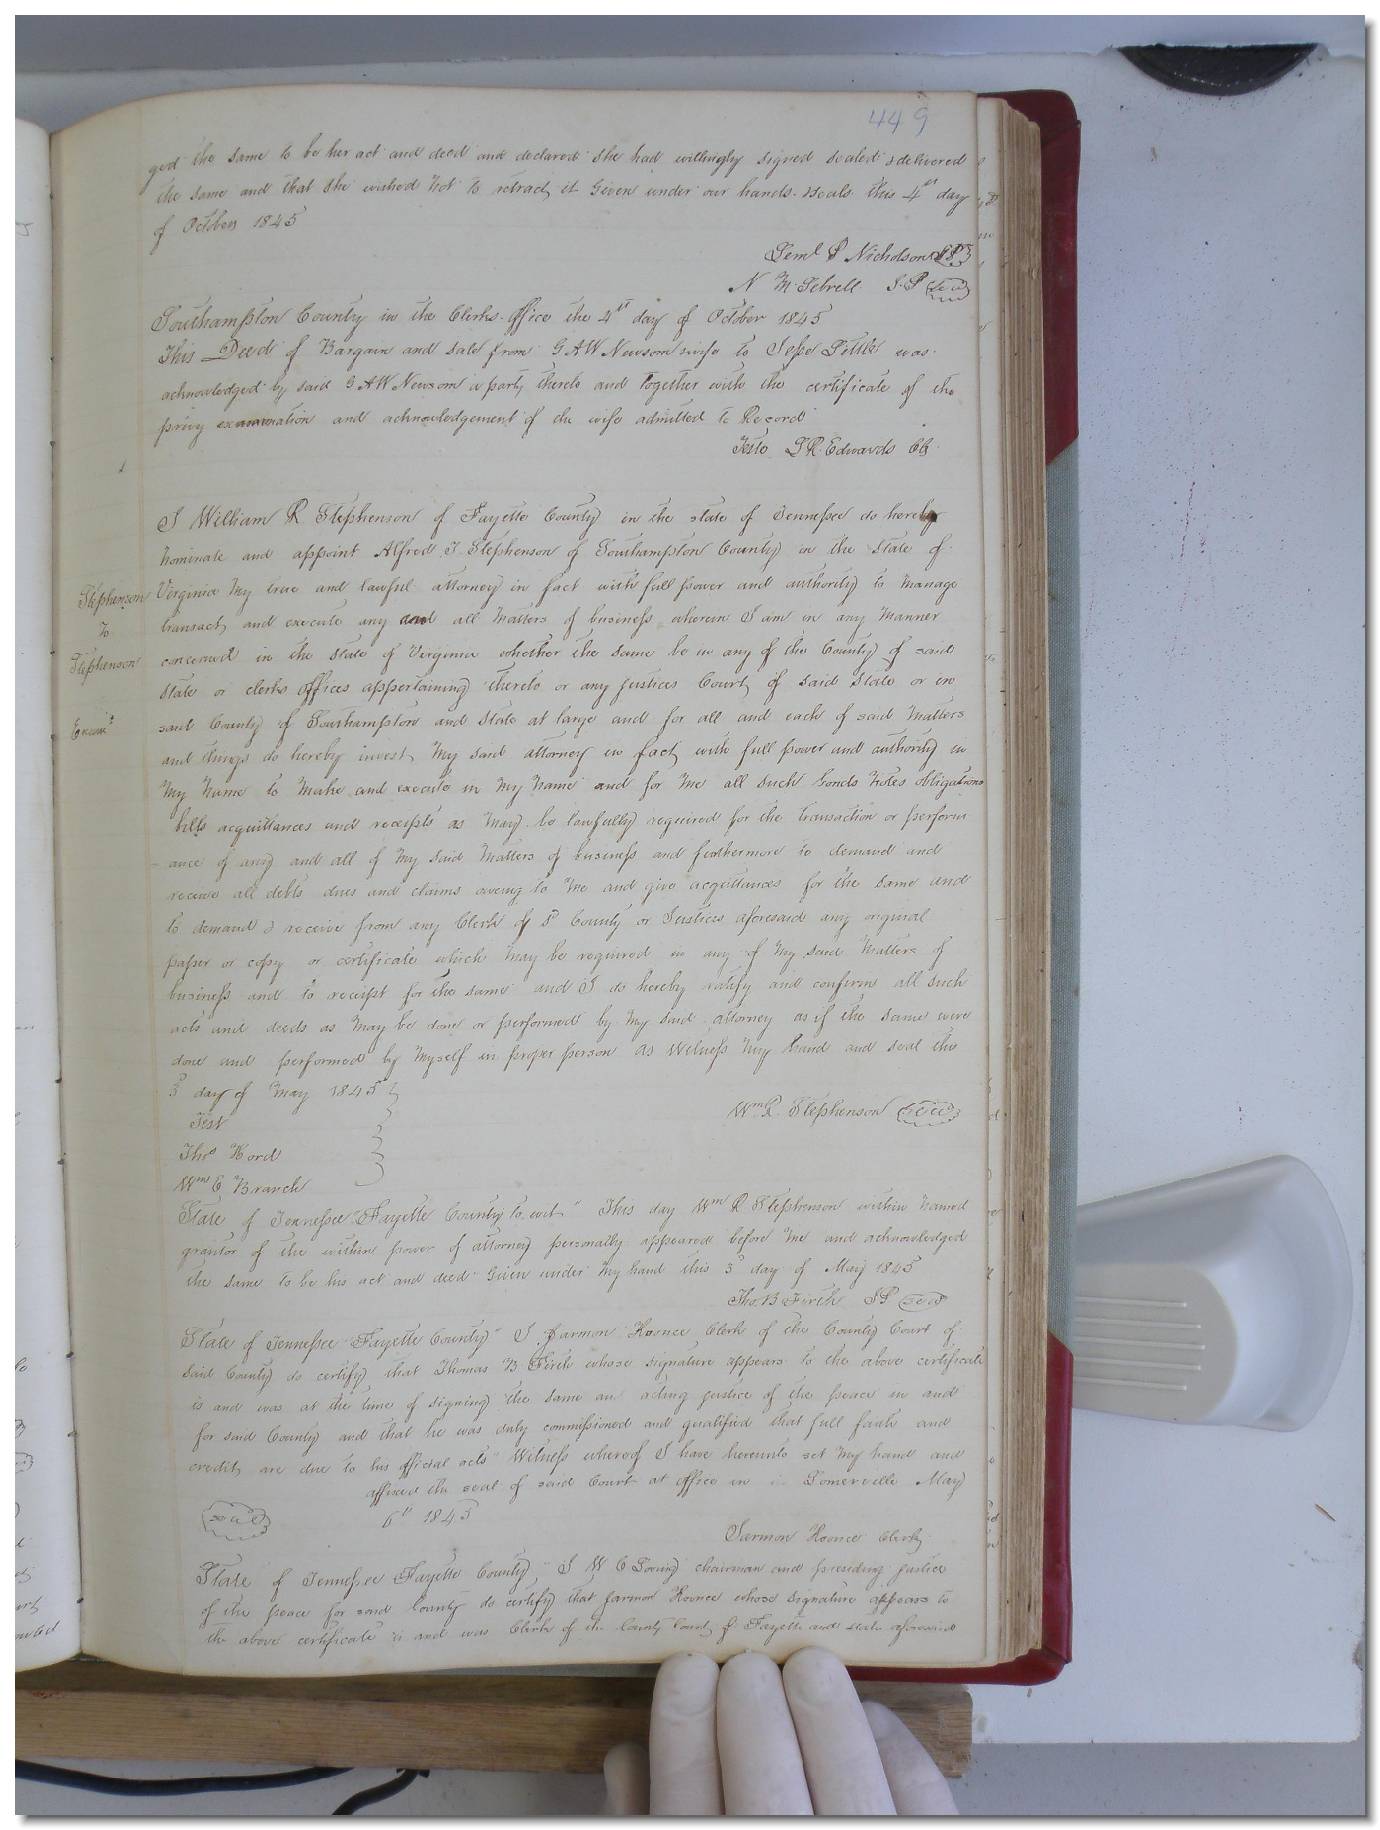 449
ged the same to be her act and deed and declared she had willingly signed sealed & delivered
the same and that she wished not to retract it Given under our hands & seals this 4th day
of October 1845
Leml P Nicholson
N M Sebrell J.P seal
Southampton County in the Clerks Office the 4th day of October 1845
This Deed of Bargain and sale from G A W Newsom & wife to Jesse Little was
acknowledged by said G A W Newsom a party thereto and together with the certificate of the
privy examination and acknowledgement of the wife admitted to Record
Teste L R Edwards CC
I William R Stephenson of Fayette County in the state of Tennessee do hereby
nominate and appoint Alfred J Stephenson of Southampton County in the State of
Stephenson
to
Stephenson
Exam'd
Virginia my true and lawful attorney in fact with full power and authority to manage
transact and execute any and all matters of business wherein I am in any manner
concerned in the state of Virginia whether the same be in any of the County of said
state or clerks offices appertaining thereto or any justices Court of said state or in
said County of Southampton and state at large and for all and each of said matters
and things do hereby invest my said attorney in fact with full power and authority in
my name to make and execute in my name and for me all such bonds notes obligations
bills acquittances and receipts as may be lawfully required for the transaction or perform
ance of any and all of my said matters of business and furthermore to demand and
receive all debts dues and claims owing to me and give acquittances for the same and
to demand & receive from any Clerk of sd County or Justices aforesaid any original
paper or copy or certificate which may be required in any of my said matters of
business and to receipt for the same and I do hereby ratify and confirm all such
acts and deeds as may be done or performed by my said attorney as if the same were
done and performed by myself in proper person as witness my hand and seal the
3d day of May 1845
Wm R. Stephenson seal
Test
Thos Hord
Wm C Branch
State of Tennessee Fayette County to wit" This day Wm R Stephenson within named
grantor of the within power of attorney personally appeared before me and acknowledged
the same to be his act and deed Given under my hand this 3d day of May 1845
Tho. B Firth JP seal
State of Tennessee Fayette County" I Jarmon Koonce Clerk of the County Court of
said County do certify that Thomas B Firth whose signature appears to the above certificate
is and was at the time of signing the same an acting justice of the peace in and
for said County and that he was duly commissioned and qualified that full faith and
credit are due to his official acts" Witness whereof I have hereunto set my hand and
affixed the seal of said Court at office in Somerville May
seal 6th 1845
Jarmon Koonce Clerk
State of Tennessee Fayette County" I W C Loving chairman and presiding justice
of the peace for said County do certify that Jarmon Koonce whose signature appears to
the above certificate is and was Clerk of the County Court of Fayette and state aforesaid